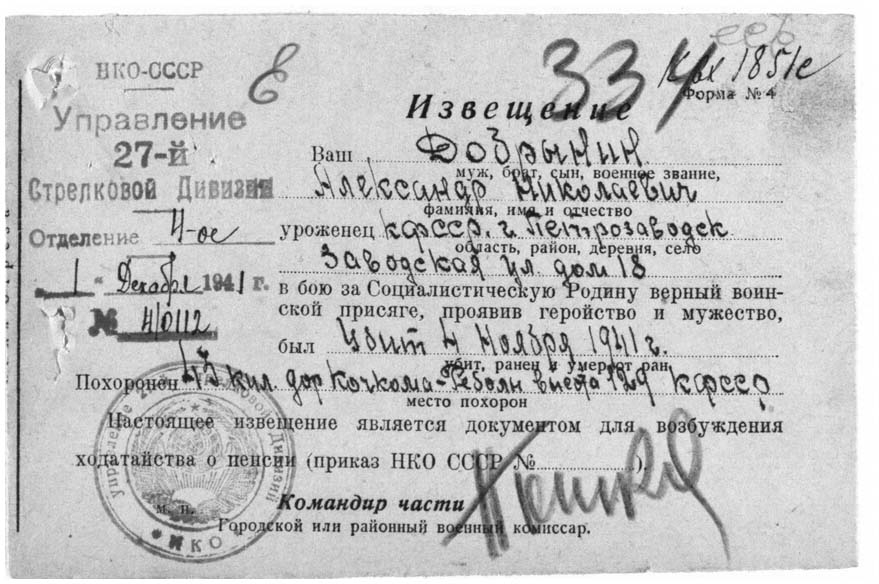 НКО-СССР
Управление
27-й
Стрелковой Дивизии
Отделение 4-ое
"1" Декабря 1941 г.
№ 4/0112
Е
334
1851с
Форма № 4
Извещение
Ваш Добрынин
муж, брат, сын, военное звание,
Александр Николаевич
фамилия, имя и отчество
уроженец кфсср. г. Петрозаводск
область, район, деревня, село
Заводская ул. дом 18
в бою за Социалистическую Родину верный воин-
ской присяге, проявив геройство и мужество,
был Убит 4 Ноября 1941 г.
убит, ранен и умер от ран
Похоронен кил. дор Кочкома-Реболы кфсср
место похорон
Настоящее извещение является документом для возбуждения
ходатайства о пенсии (приказ НКО СССР № ).
Командир части
м. п.
Городской или районный военный комиссар.
Управление Стрелковой Дивизии
НКО